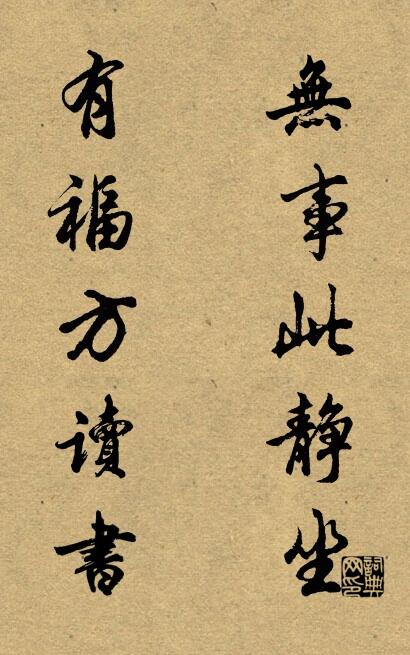 無事此靜坐
有福方讀書
詞典網印